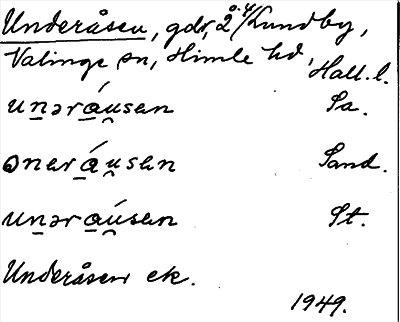 Underåsen, gdr, 2 å. 4/Lundby,
Valinge sn, Himle hd,
Hall. l.
unəráu̯sen Sa.
oneráu̯sen Sand.
unəraú̯sen St.
Underåsen ek.
1949.